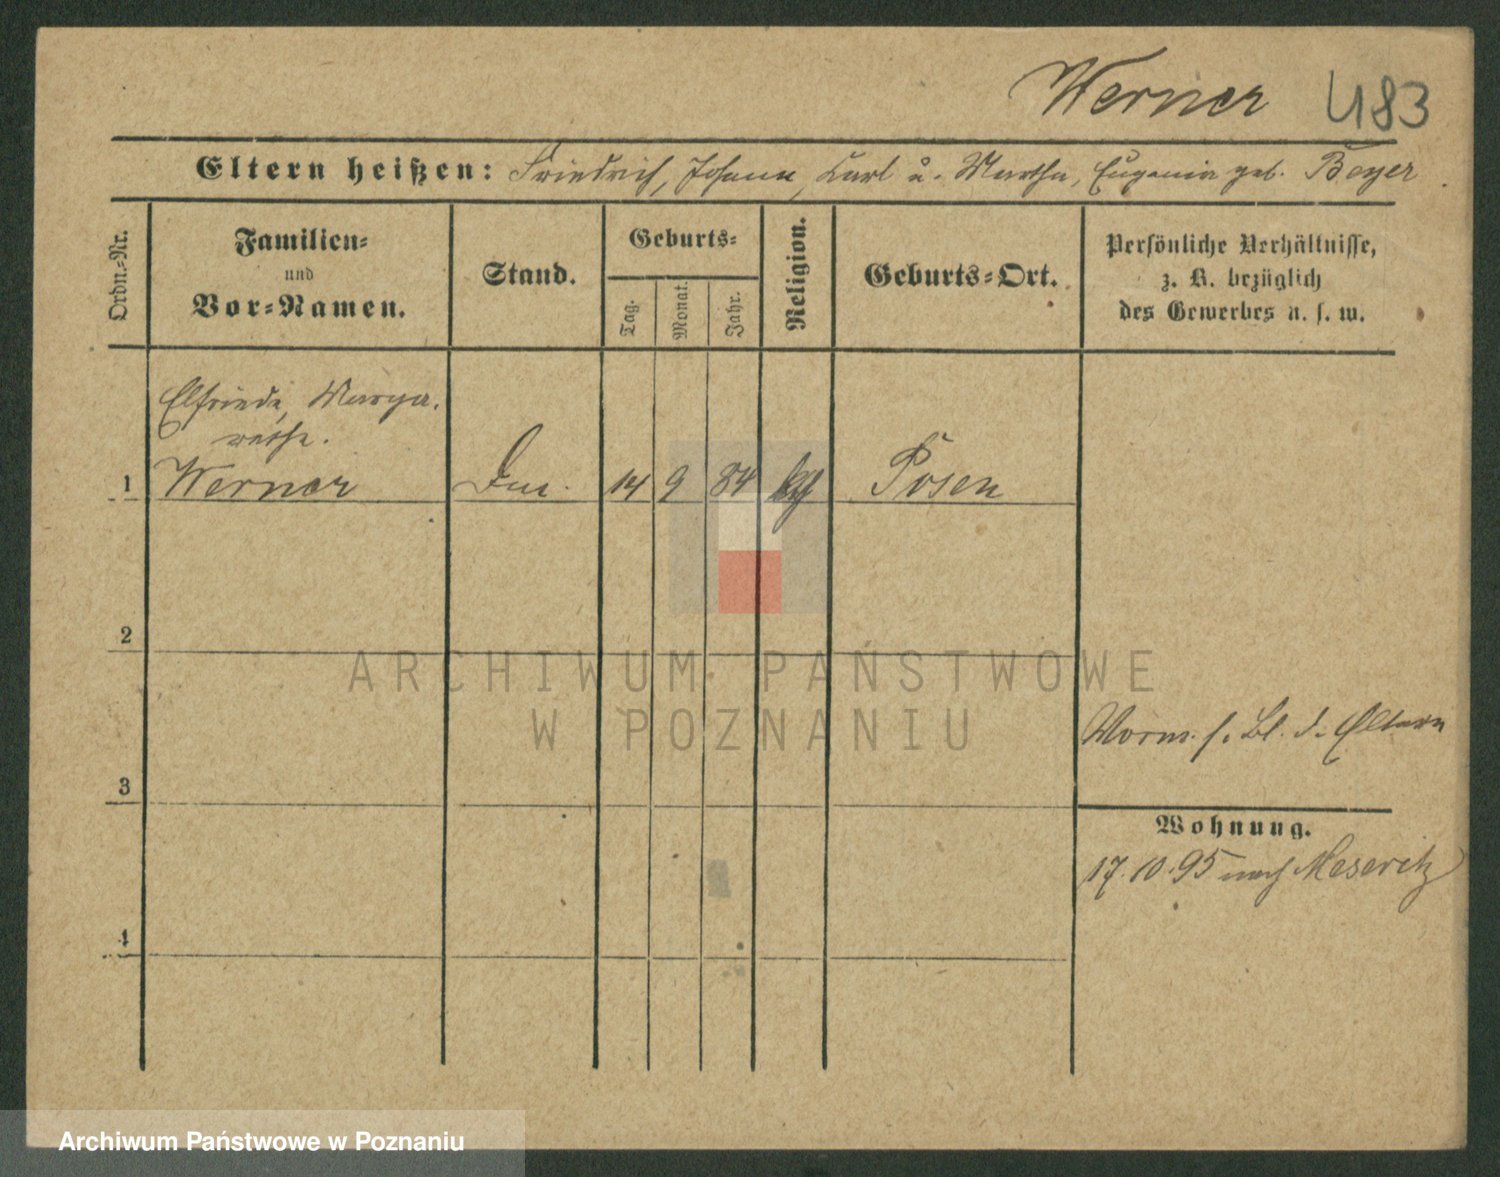 Werner 483
Eltern heißen: Friedrich, Johann, Karl u. Martha, Eugenie geb. Beyer.
Ordn.-Nr.
Familien-
und
Vor-Namen.
Stand.
Geburts-
Tag.
Monat.
Jahr.
Religion.
Geburts-Ort.
Persönliche Verhältnisse,
z. B. bezüglich
des Gewerbes u. s. w.
Elfriede, Marga-
rethe.
1 Werner 14 9 84 Posen
2
ARCHIWUM PAŃSTWOWE
W POZNANIU
Vorm. s. Bl. d. Eltern
3
Wohnung.
17.10.95 nach Meseritz
4
Archiwum Państwowe w Poznaniu